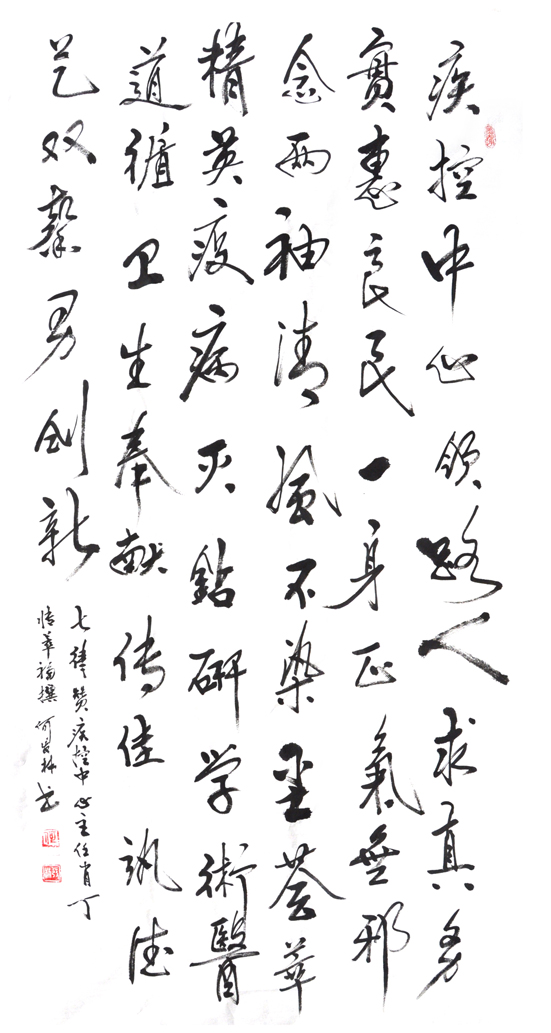 疾控中心领路人求真务
實惠良民一身正氣無邪
念两袖清風不染尘荟萃
精英疫病灭點研学術醫
道循卫生奉献传佳訊德
艺双馨勇创新
七律赞疾控中心主任肖丁
華福撰 何 林书